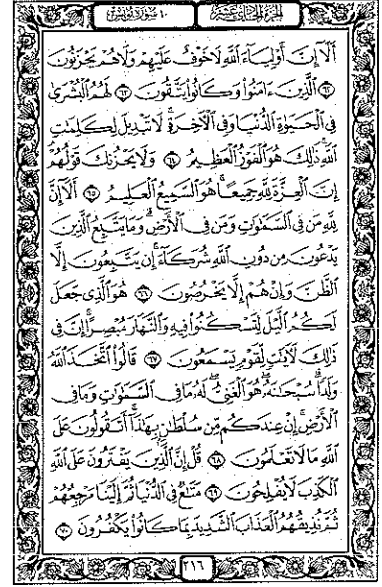 ١٠ سورة يونس
الجزء الحادي عشر
أَلَآ إِنَّ أَوْلِيَآءَ ٱللَّهِ لَا خَوْفٌ عَلَيْهِمْ وَلَا هُمْ يَحْزَنُونَ
٦٢ ٱلَّذِينَ ءَامَنُوا۟ وَكَانُوا۟ يَتَّقُونَ ٦٣ لَهُمُ ٱلْبُشْرَىٰ
فِى ٱلْحَيَوٰةِ ٱلدُّنْيَا وَفِى ٱلْـَٔاخِرَةِ ۚ لَا تَبْدِيلَ لِكَلِمَـٰتِ
ٱللَّهِ ۚ ذَٰلِكَ هُوَ ٱلْفَوْزُ ٱلْعَظِيمُ ٦٤ وَلَا يَحْزُنكَ قَوْلُهُمْ ۘ
إِنَّ ٱلْعِزَّةَ لِلَّهِ جَمِيعًا ۚ هُوَ ٱلسَّمِيعُ ٱلْعَلِيمُ ٦٥ أَلَآ إِنَّ
لِلَّهِ مَن فِى ٱلسَّمَـٰوَٰتِ وَمَن فِى ٱلْأَرْضِ ۗ وَمَا يَتَّبِعُ ٱلَّذِينَ
يَدْعُونَ مِن دُونِ ٱللَّهِ شُرَكَآءَ ۚ إِن يَتَّبِعُونَ إِلَّا
ٱلظَّنَّ وَإِنْ هُمْ إِلَّا يَخْرُصُونَ ٦٦ هُوَ ٱلَّذِى جَعَلَ
لَكُمُ ٱلَّيْلَ لِتَسْكُنُوا۟ فِيهِ وَٱلنَّهَارَ مُبْصِرًا ۚ إِنَّ فِى
ذَٰلِكَ لَـَٔايَـٰتٍ لِّقَوْمٍ يَسْمَعُونَ ٦٧ قَالُوا۟ ٱتَّخَذَ ٱللَّهُ
وَلَدًا ۗ سُبْحَـٰنَهُۥ ۖ هُوَ ٱلْغَنِىُّ ۖ لَهُۥ مَا فِى ٱلسَّمَـٰوَٰتِ وَمَا فِى
ٱلْأَرْضِ ۚ إِنْ عِندَكُم مِّن سُلْطَـٰنٍۭ بِهَـٰذَآ ۚ أَتَقُولُونَ عَلَى
ٱللَّهِ مَا لَا تَعْلَمُونَ ٦٨ قُلْ إِنَّ ٱلَّذِينَ يَفْتَرُونَ عَلَى ٱللَّهِ
ٱلْكَذِبَ لَا يُفْلِحُونَ ٦٩ مَتَـٰعٌ فِى ٱلدُّنْيَا ثُمَّ إِلَيْنَا مَرْجِعُهُمْ
ثُمَّ نُذِيقُهُمُ ٱلْعَذَابَ ٱلشَّدِيدَ بِمَا كَانُوا۟ يَكْفُرُونَ ٧٠
٢١٦